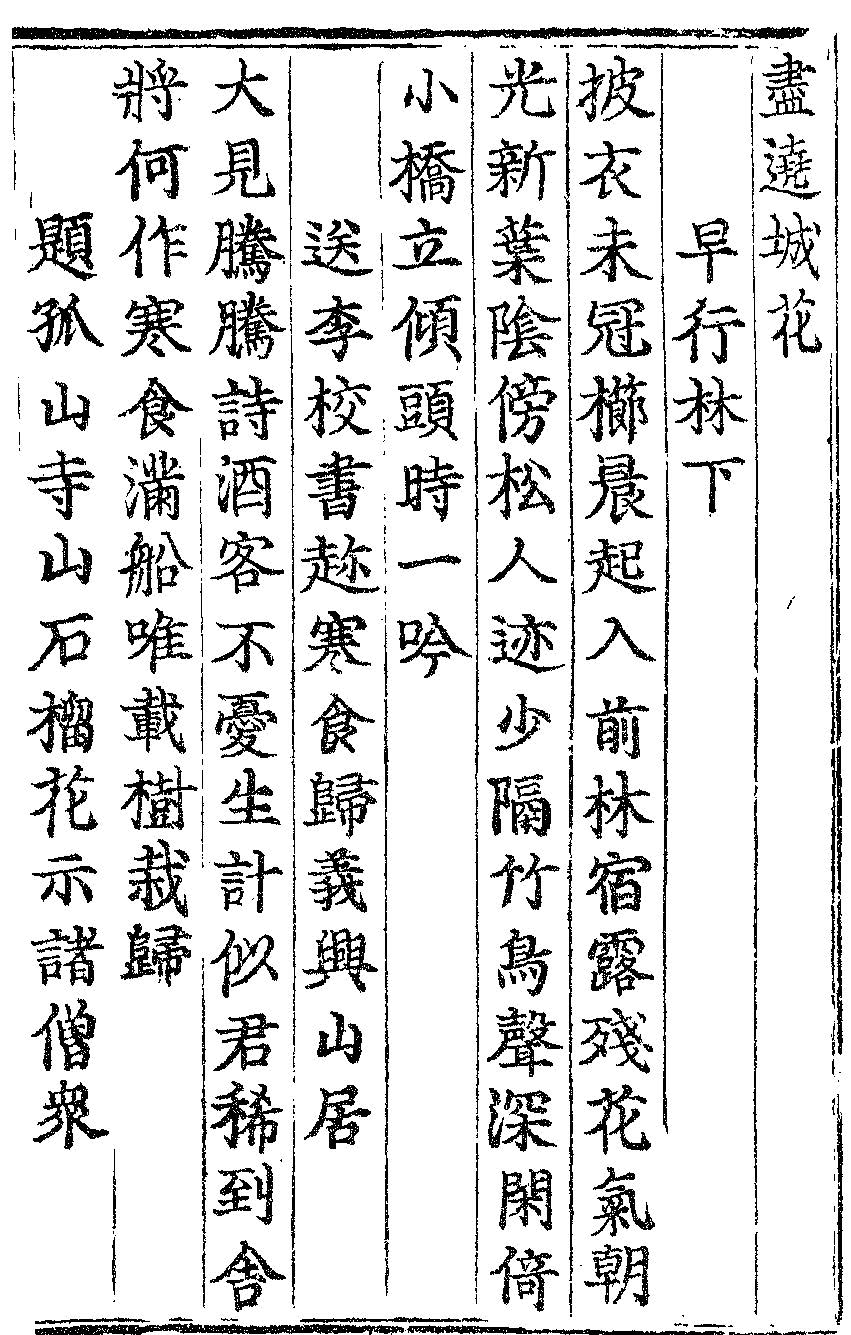 盡遶城花
早行林下
披衣未冠櫛晨起入前林宿露殘花氣朝
光新葉陰傍松人迹少隔竹鳥聲深閑倚
小橋立傾頭時一吟
送李校書趂寒食歸義興山居
大見騰騰詩酒客不憂生計似君稀到舍
將何作寒食滿船唯載樹栽歸
題孤山寺山石榴花示諸僧衆